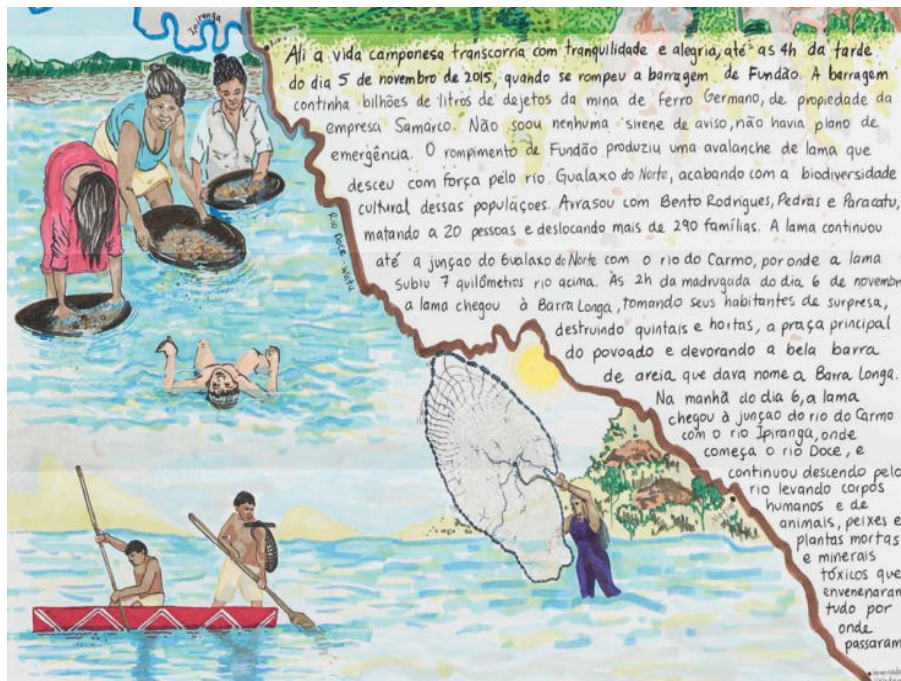 Ipiranga
Ali a vida camponesa transcorria com tranquilidade e alegria, até as 4h da tarde
do dia 5 de novembro de 2015, quando se rompeu a barragem de Fundão. A barragem
continha bilhões de litros de dejetos da mina de Ferro Germano, de propiedade da
empresa Samarco. Não soou nenhuma sirene de aviso, não havia plano de
emergência. O rompimento de Fundão produziu uma avalanche de lama que
desceu com força pelo rio Gualaxo do Norte, acabando com a biodiversidade
cultural dessas populaçoes. Arrasou com Bento Rodrigues, Pedras e Paracatu,
matando a 20 pessoas e deslocando mais de 290 famílias. A lama continuou
até a junçao do Gualaxo do Norte com o rio do Carmo, por onde a lama
subiu 7 quilômetros rio acima. Às 2h da madrugada do dia 6 de novembr
a lama chegou à Barra Longa, tomando seus habitantes de surpresa,
destruindo quintais e hortas, a praça principal
do povoado e devorando a bela barra
de areia que dava nome a Barra Longa.
Na manhã do dia 6, a lama
chegou à junçao do rio do Carmo
com o rio Ipiranga, onde
começa o rio Doce, e
continuou descendo pelo
rio levando corpos
humanos e de
animais, peixes e
plantas mortas
e minerais
tóxicos que
envenenaram
tudo por
onde
passaram
Rio Doce - Watu